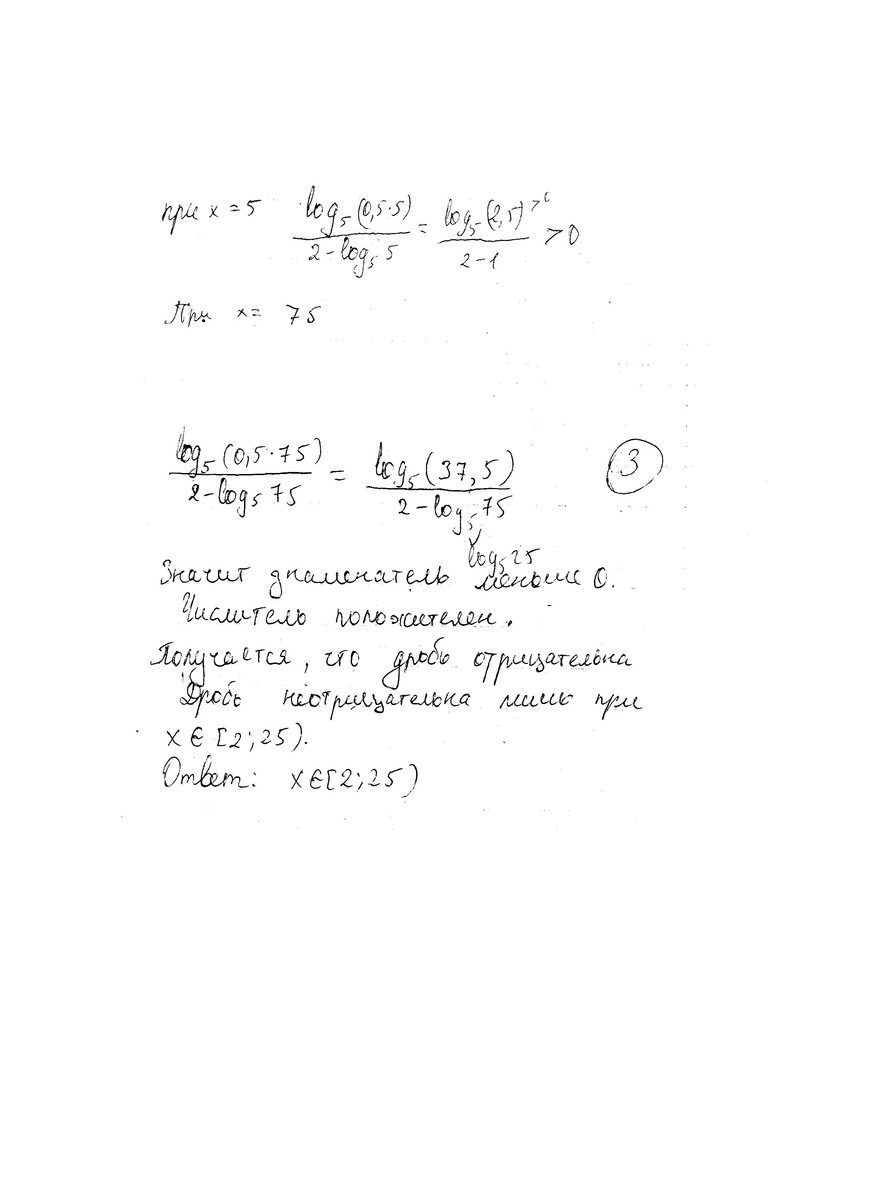 при x = 5 log₅(0,5·5) / 2 - log₅ 5 = log₅(2,5) > 0 / 2 - 1 > 0
При x = 75
log₅(0,5·75) / 2 - log₅ 75 = log₅(37,5) / 2 - log₅ 75
3
log₅ 25
Значит знаменатель меньше 0.
Числитель положителен.
Получается, что дробь отрицательна
Дробь неотрицательна лишь при
x ∈ [2; 25).
Ответ: x ∈ [2; 25)